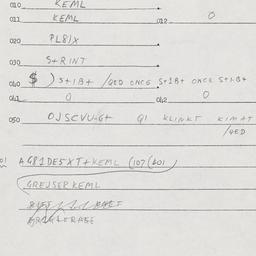 010 KEML
011 KEML 012 0
020 PL8)X
030 S+RINT
040 $ ) S+1B+ /QED ONCE S+1B+ ONCE S+1B+
041 0 042 0
050 OJSCVU4G+ Q1 KLINKT KIMAT
/QED
01 AG81DE5XT+KEML (107(401
GREJSER KEML